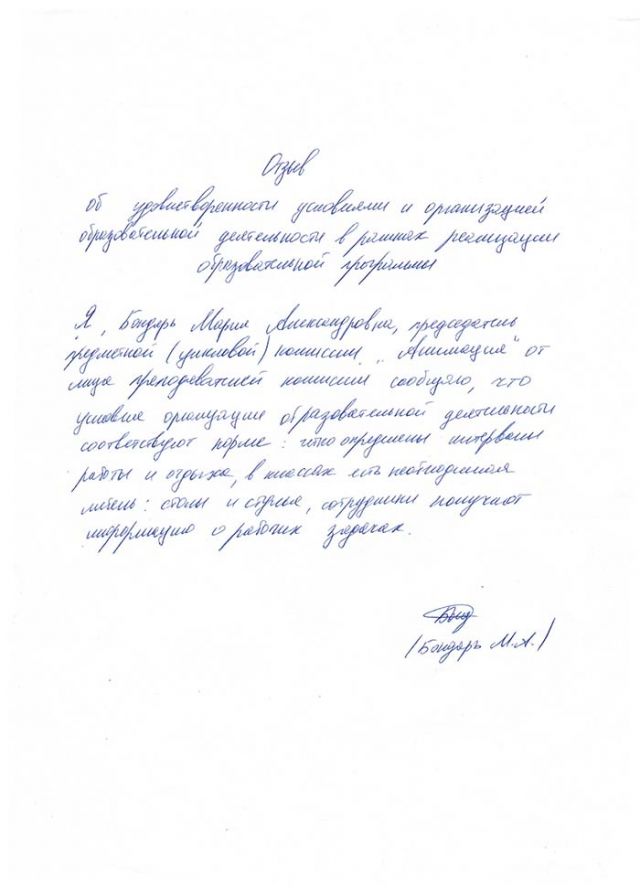 Отзыв
об удовлетворенности условиями и организацией
образовательной деятельности в рамках реализации
образовательной программы
Я, Бондарь Мария Александровна, председатель
предметной (цикловой) комиссии „Анимация“ от
лица преподавателей комиссии сообщаю, что
условия организации образовательной деятельности
соответствуют норме: четко определены интервалы
работы и отдыха, в классах есть необходимая
мебель: столы и стулья, сотрудники получают
информацию о рабочих задачах.
/Бондарь М.А./